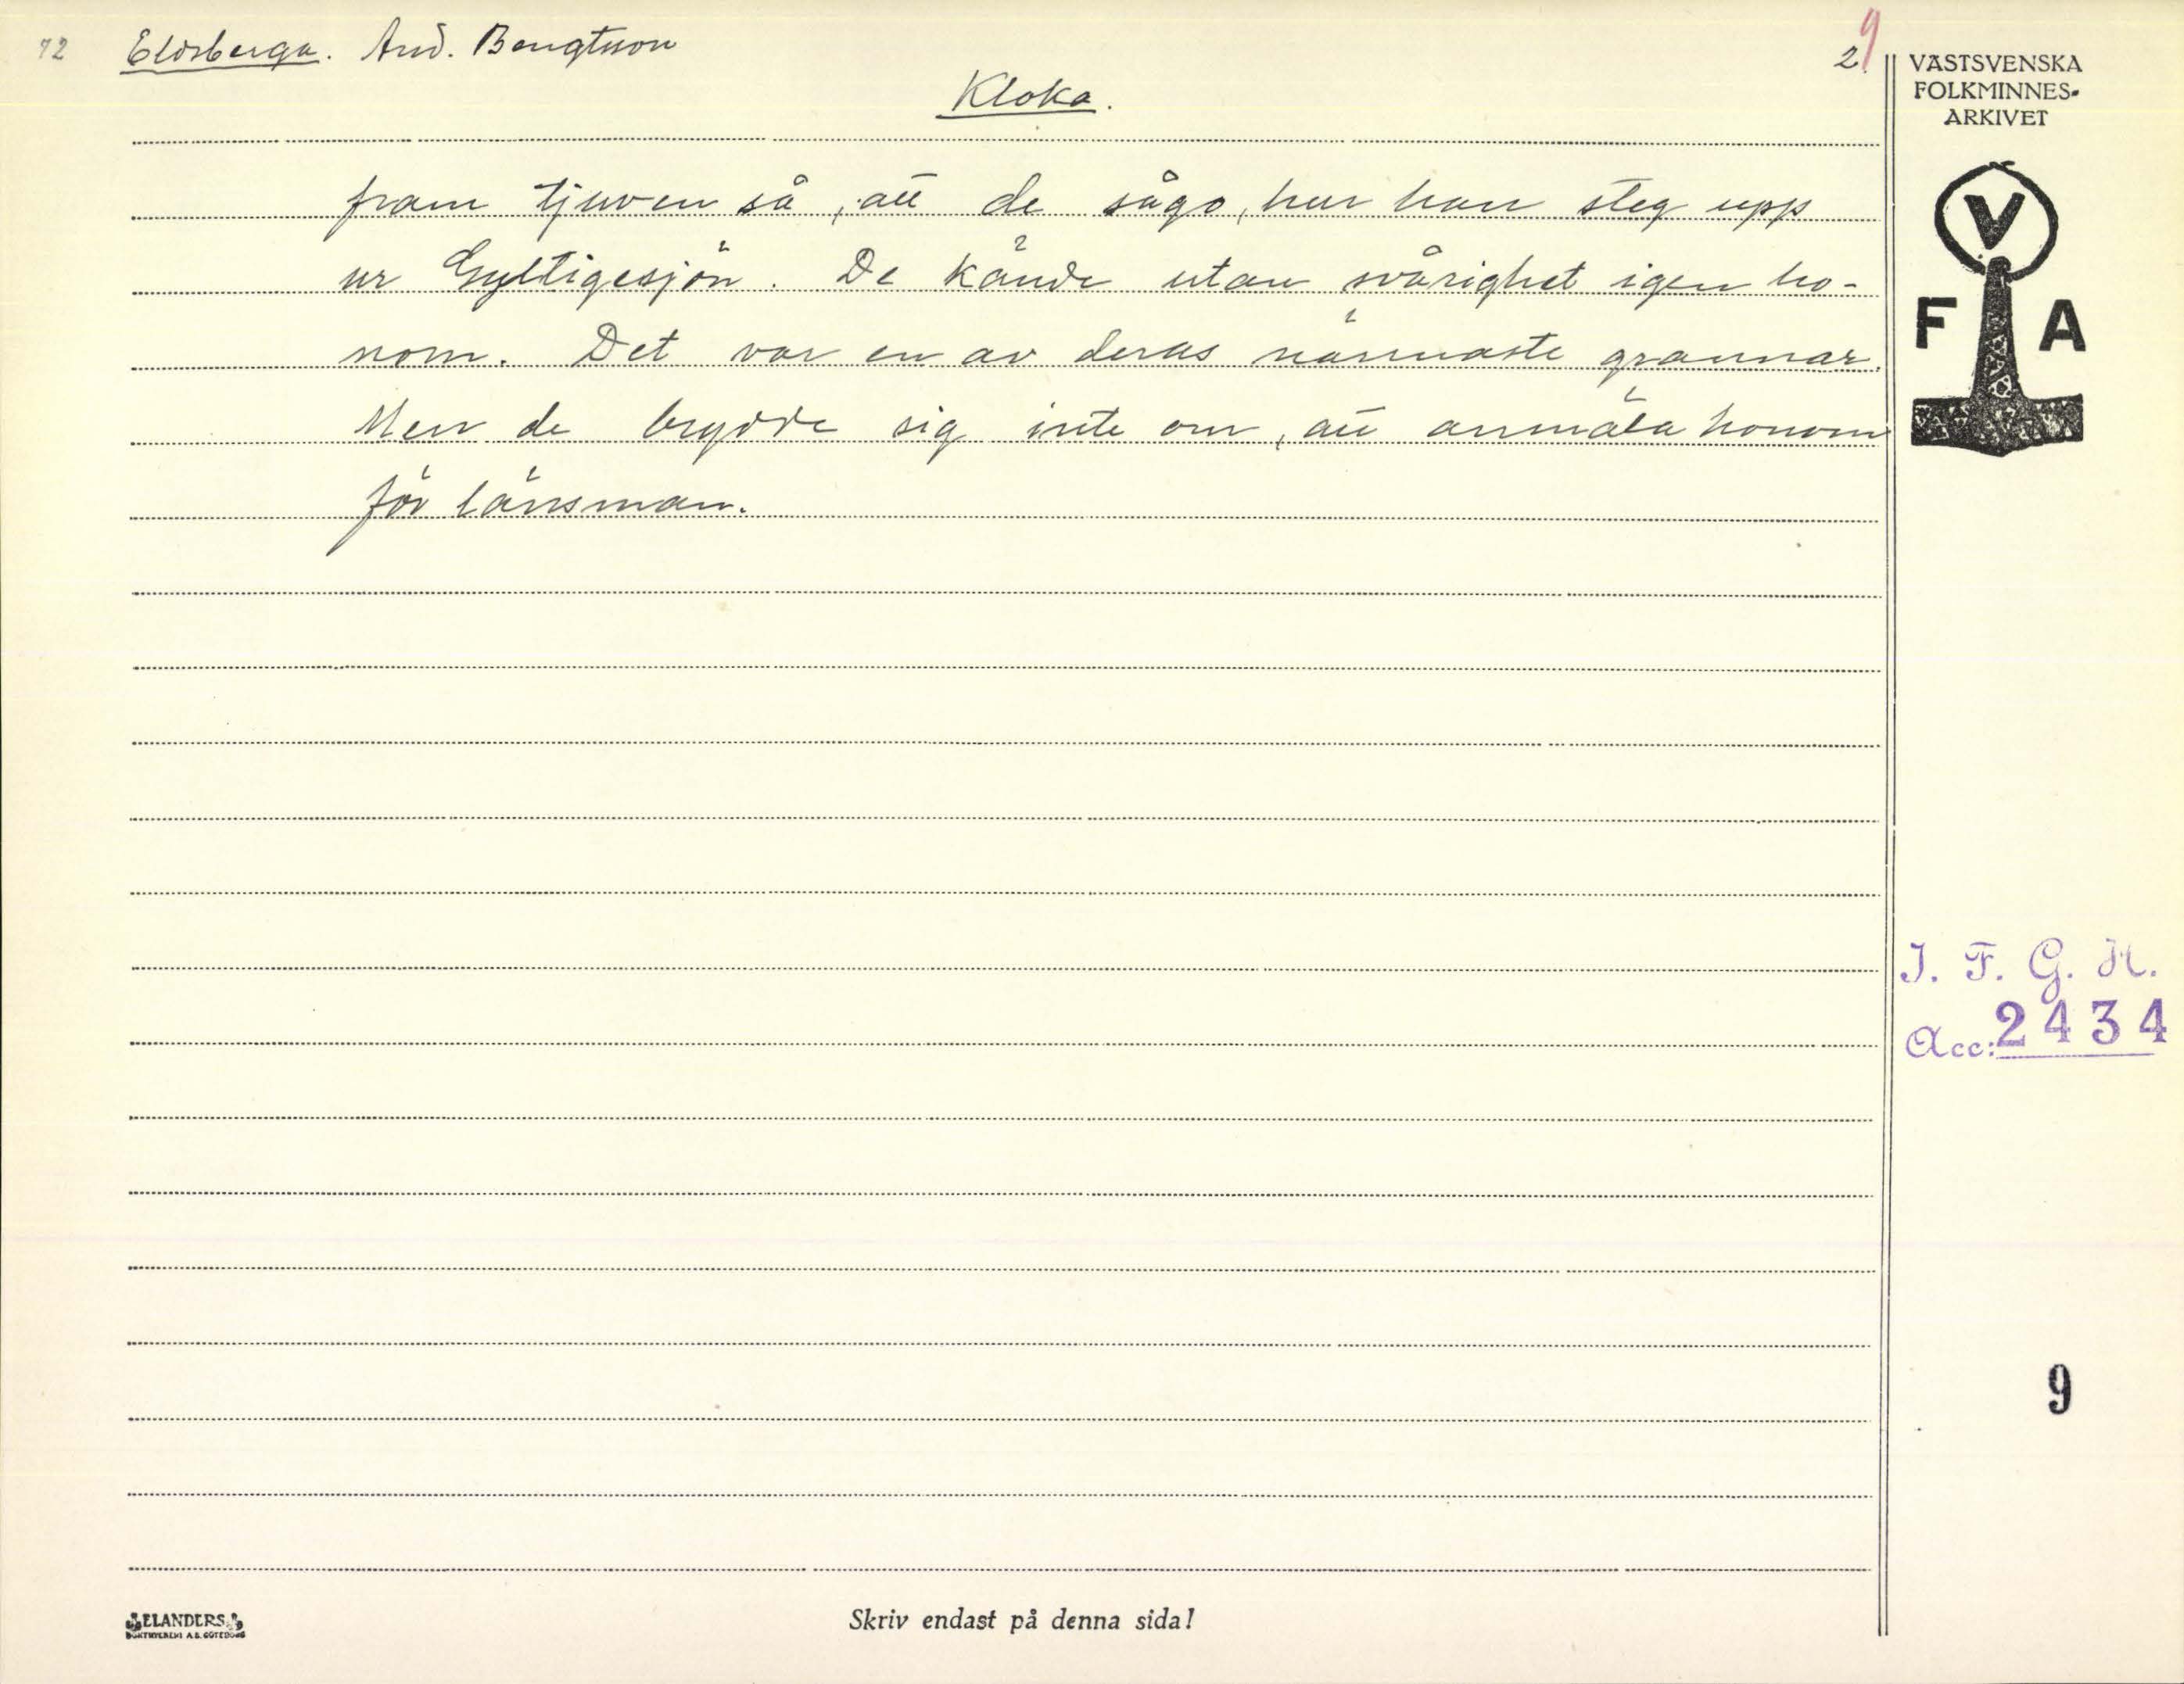 72 Eldsberga. And. Bengtsson 2. 9
Kloka.
fram tjuven så, att de sågo, hur han steg upp
ur Gyltigesjön. De kände utan svårighet igen ho-
nom. Det var en av deras närmaste grannar.
Men de brydde sig inte om, att anmäla honom
för länsman.
VÄSTSVENSKA
FOLKMINNES-
ARKIVET
V
F A
I. F. G. H.
Acc: 2434
9
ELANDERS
BOKTRYCKERI A.B. GÖTEBORG
Skriv endast på denna sida!